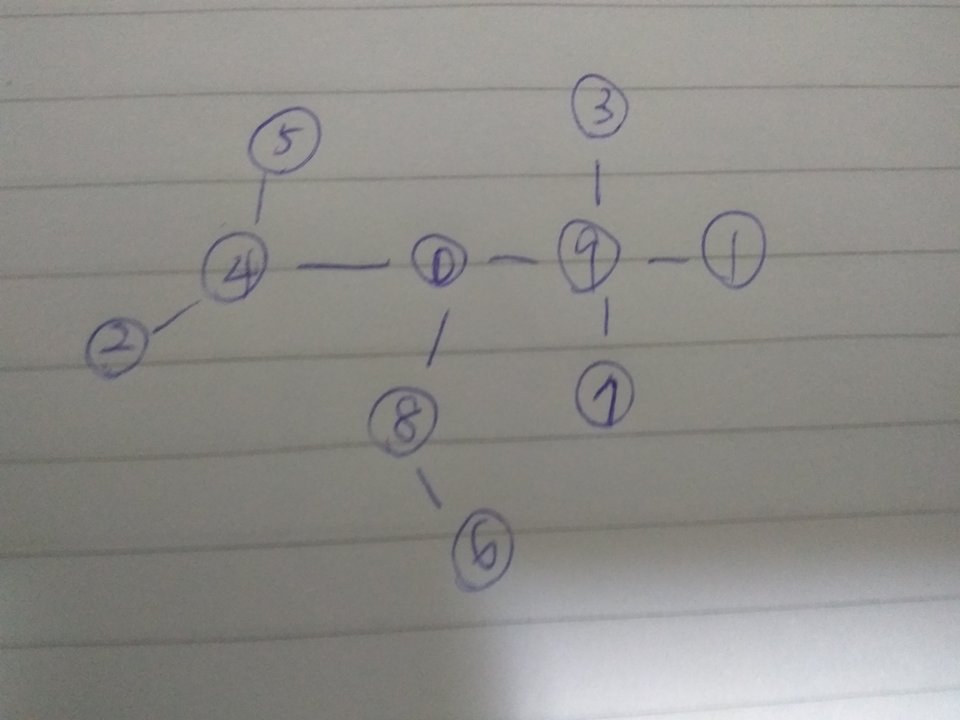 3
5
4 0 9 1
2
8 7
6